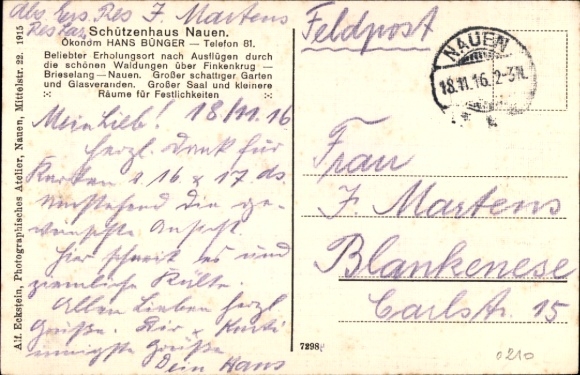 Abs. Ers. Res. J. Martens
Res. Laz.
Schützenhaus Nauen.
Ökonom HANS BÜNGER — Telefon 81.
Beliebter Erholungsort nach Ausflügen durch
die schönen Waldungen über Finkenkrug —
Brieselang—Nauen. Großer schattiger Garten
und Glasveranden. Großer Saal und kleinere
Räume für Festlichkeiten
18/11.16
Mein Lieb!
Herzl. Dank für
Karten v 16. & 17 ds.
Umstehend die ge-
wünschte Ansicht.
Hier schneit es und
ziemliche Kälte.
Allen Lieben herzl.
Grüße. Dir &
innigste Grüße
Dein Hans
Alf. Eckstein, Photographisches Atelier, Nauen, Mittelstr. 22. 1915
7298
Feldpost
NAUEN
18.11.16. 2-3N.
Frau
J. Martens
Blankenese
Carlstr. 15
0210